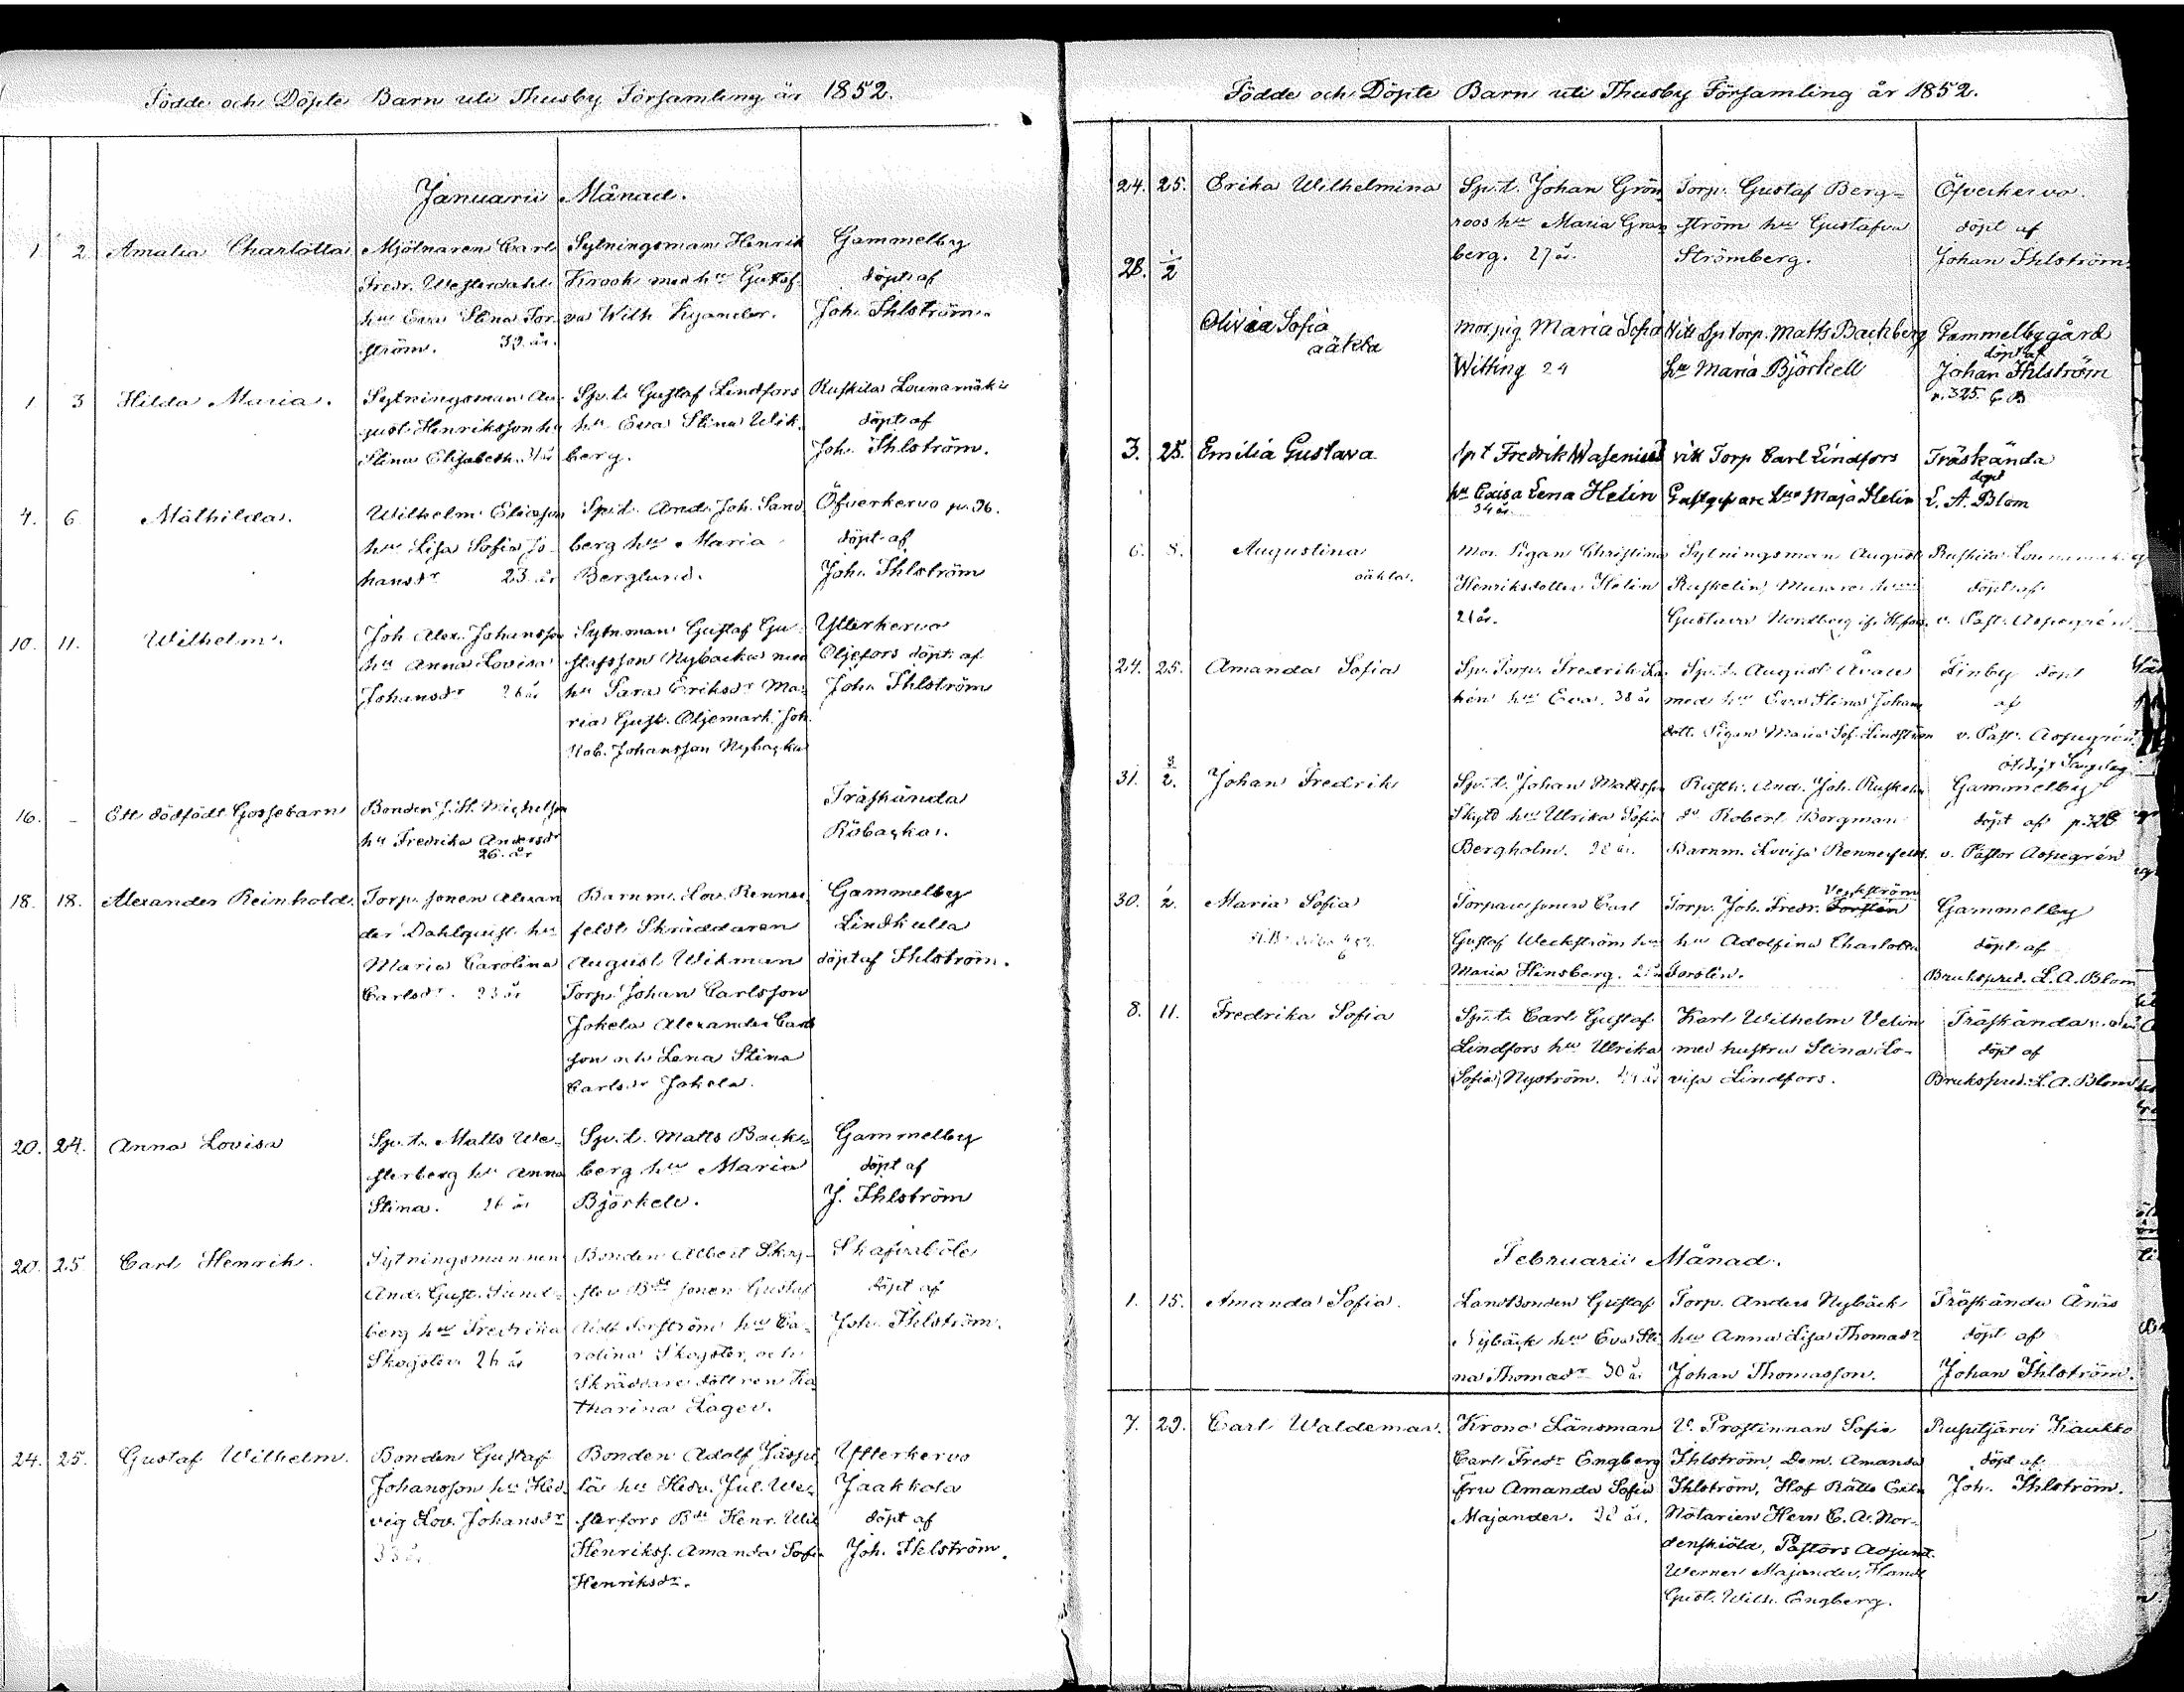 Födde och Döpte Barn uti Thusby Församling år 1852.
Januarii Månad.
1. 2. Amalia Charlotta
Mjölnaren Carl
Fredr. Westerdahl
hu Eva Stina Tor-
ström. 39 år.
Sytningsman Henrik
Krook med hu Gustaf-
va Wilh Kyander.
Gammelby
döpt af
Joh. Ihlström.
1 3 Hilda Maria.
Sytningsman Au-
gust Henriksson hu
Stina Elisabeth. 31 år
Sp.t. Gustaf Lindfors
hu Eva Stina Wik-
berg.
Ruskila Lounamäki
döpt af
Joh. Ihlström.
4. 6 Mathilda.
Wilhelm Ericsson
hu Lisa Sofia Jo-
hansdr 23 år
Sp.t. And. Joh. Sand
berg hu Maria
Berglund.
Öfverkervo p. 36.
döpt af
Joh. Ihlström
10. 11. Wilhelm.
Joh. Alex. Johansson
hu Anna Lovisa
Johansdr 26 år
Sytn.man Gustaf Gu-
stafsson Nybacka med
hu Sara Eriksdr Ma-
ria Gust. Oljemark. Joh.
Rob. Johansson Nybacka
Ytterkervo
Oljefors döpt af
Joh. Ihlström
16. - Ett dödfödt Gossebarn
Bonden J. H. Michelsson
hu Fredrika Andersdr
26. år
Träskända
Röbacka.
18. 18. Alexander Reinhold.
Torp. sonen Alexan
der Dahlquist hu
Maria Carolina
Carlsdr. 23 år
Barnm. Lov. Renner
feldt Skräddaren
August Wikman
Torp. Johan Carlsson
Jokela Alexander Carls
son och Lena Stina
Carlsdr Jokela.
Gammelby
Lindkulla
döpt af Ihlström.
20. 24. Anna Lovisa
Sp.t. Matts We-
sterberg hu Anna
Stina. 26 år
Sp.t. Matts Back-
berg hu Maria
Björkell.
Gammelby
döpt af
J. Ihlström
20. 25 Carl Henrik.
Sytningsmannen
And. Gust. Sund-
berg hu Fredrika
Skogster 26 år
Bonden Albert Skog-
ster Bde sonen Gustaf
Adolf Forström hu Ca-
rolina Skogster, och
Skräddare dottren Ka
tharina Lager.
Skafverböle
döpt af
Joh. Ihlström.
24. 25. Gustaf Wilhelm.
Bonden Gustaf
Johansson hu Hed-
vig Lov. Johansdr
33 år
Bonden Adolf Jäspi
lä hu Hedv. Jul. We-
sterfors Bde Henr. Wil
Henrikss. Amanda Sofia
Henriksdr.
Ytterkervo
Jaakkola
döpt af
Joh. Ihlström.
Födde och Döpte Barn uti Thusby Församling år 1852.
24. 25. Erika Wilhelmina
Sp.t. Johan Grön
roos hu Maria Gran
berg. 27 år.
Torp. Gustaf Berg-
ström hu Gustafva
Strömberg.
Öfverkervo.
döpt af
Johan Ihlström.
28. 1/2
Olivia Sofia
oäkta
mor. pig Maria Sofia
Witting 24
Vitt Sp torp. Matts Backberg
hu Maria Björkell
Gammelbygård
döpt af
Johan Ihlström
p. 325. C B
3. 25. Emilia Gustava
sp t Fredrik Wasenius
hu Lovisa Lena Helin
34 år.
vitt Torp Carl Lindfors
hu Maja Helin
Träskända
döpt
L. A. Blom
6. 8. Augustina
oäkta.
Mor. Pigan Christina
Henriksdotter Helin
21 år.
Sytningsman August
Ruskelin, Murare
Gustava Nordberg
Ruskila Lounamäki
döpt af
v. Past. Aspegrén
24. 25. Amanda Sofia
Sp. Torp. Fredrik
hu Eva. 38 år
Sp.t. August
med hu Eva Stina Johans
dott. Pigan Maria Sof. Lindström
Linby döpt
af
v. Past. Aspegrén
31. 3/2. Johan Fredrik
Sp.t. Johan Mattsson
Skyld hu Ulrika Sofia
Bergholm. 28 år.
Rusth. And. Joh. Ruskelin
do Robert Borgman
Barnm. Lovisa Rennerfeldt.
Gammelby
döpt af p. 328
v. Pastor Aspegrén
30. 1/2. Maria Sofia
Torparesonen Carl
Gustaf Weckström hu
Maria Hinsberg. 21 år
Veckström
Torp. Joh. Fredr. Forslin
hu Adolfina Charlotta
Forslin.
Gammelby
döpt af
Brukspred. L. A. Blom
8. 11. Fredrika Sofia
Sp.t. Carl Gustaf
Lindfors hu Ulrika
Sofia Nyström.
Karl Wilhelm Velin
med hustru Stina Lo-
visa Lindfors.
Träskända
döpt af
Brukspred. L. A. Blom
Februarii Månad.
1. 15. Amanda Sofia.
Landbonden Gustaf
Nybäck hu Eva Sti
na Thomasdr 30 år
Torp. Anders Nybäck
hu Anna Lisa Thomasdr
Johan Thomasson.
Träskända Ånäs
döpt af
Johan Ihlström.
7. 29. Carl Waldemar.
Krono Länsman
Carl Fredr Engberg
Fru Amanda Sofia
Majander. 22 år.
V. Prostinnan Sofia
Ihlström, Dem. Amanda
Ihlström, Hof Rätts Extr
Notarien Herr C. A. Nor-
denskiöld, Pastors Adjunct.
Werner Majander, Handl
Gust. Wilh. Engberg.
Rusutjärvi Kaukko
döpt af
Joh. Ihlström.